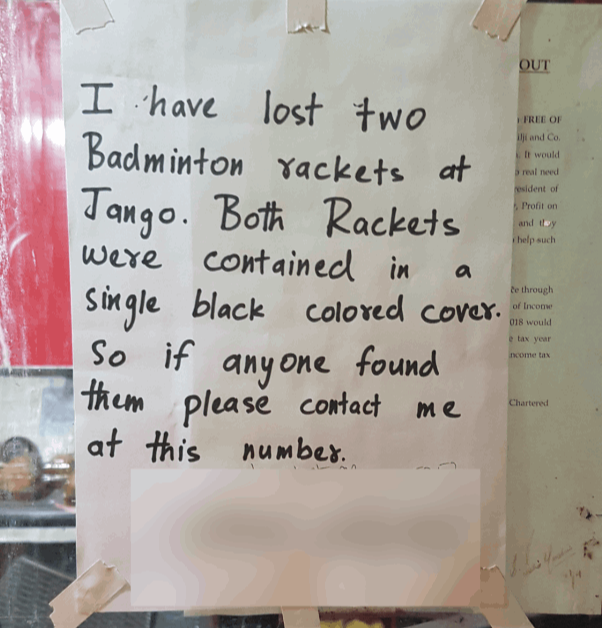 I have lost two
Badminton rackets at
Tango. Both Rackets
were contained in a
single black colored cover.
So if anyone found
them please contact me
at this number.
OUT
FREE OF
and Co.
. It would
real need
esident of
, Profit on
and they
help such
through
of Income
018 would
tax year
ncome tax
Chartered